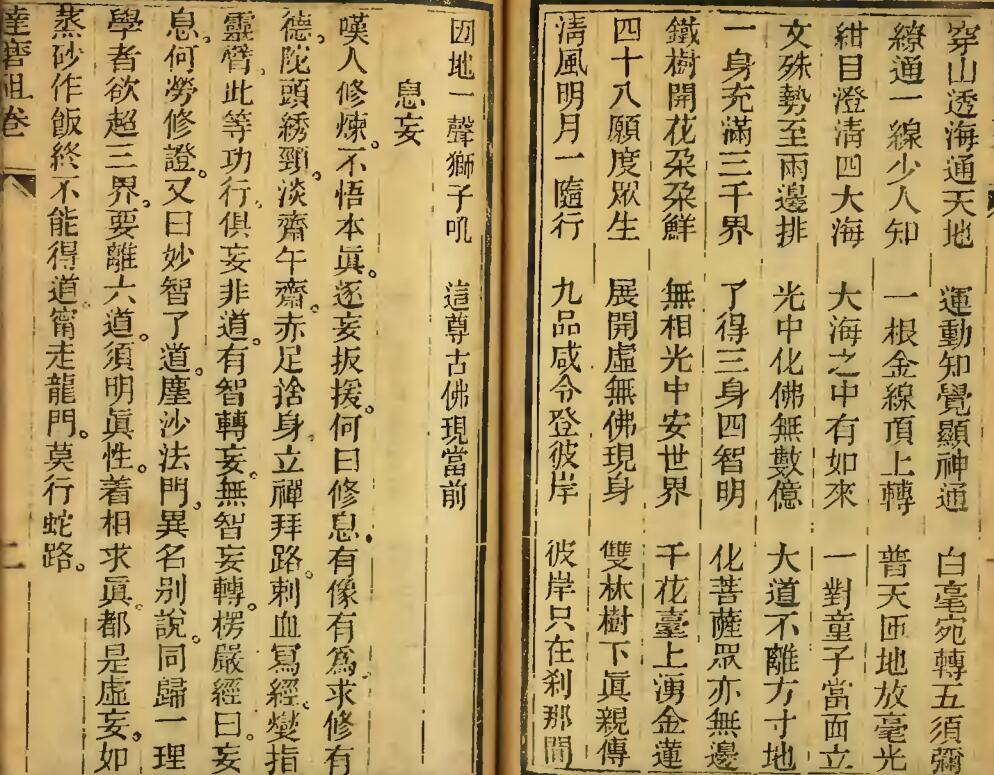 穿山透海通天地　運動知覺顯神通　白毫宛轉五須彌
繚通一線少人知　一根金線頂上轉　普天匝地放毫光
紺目澄清四大海　大海之中有如來　一對童子當面立
文殊勢至兩邊排　光中化佛無數億　大道不離方寸地
一身充滿三千界　了得三身四智明　化菩薩眾亦無邊
鐵樹開花朶朶鮮　無相光中安世界　千花臺上湧金蓮
四十八願度眾生　展開虛無佛現身　雙林樹下眞親傳
淸風明月一隨行　九品咸令登彼岸　彼岸只在刹那間
㘞地一聲獅子吼　這尊古佛現當前
息妄
嘆人修煉。不悟本眞。逐妄扳援。何曰修息。有像有爲。求修有
德。陀頭綉頸。淡齋午齋。赤足捨身。立禪拜路。刺血寫經。燮指
靈臂。此等功行。俱妄非道。有智轉妄。無智妄轉。楞嚴經曰。妄
息何勞修證。又曰妙智了道。塵沙法門。異名別說。同歸一理
學者欲超三界。要離六道。須明眞性。着相求眞。都是虛妄。如
蒸砂作飯。終不能得道。甯走龍門。莫行蛇路。
達磨祖卷　二